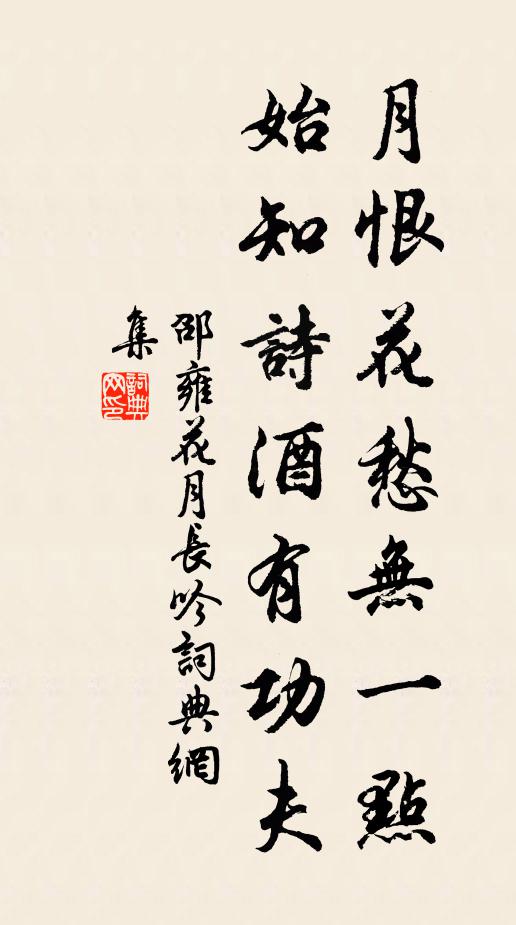 月恨花愁無一點
始知詩酒有功夫
邵雍花月長吟詞典網
集
詞典
网印